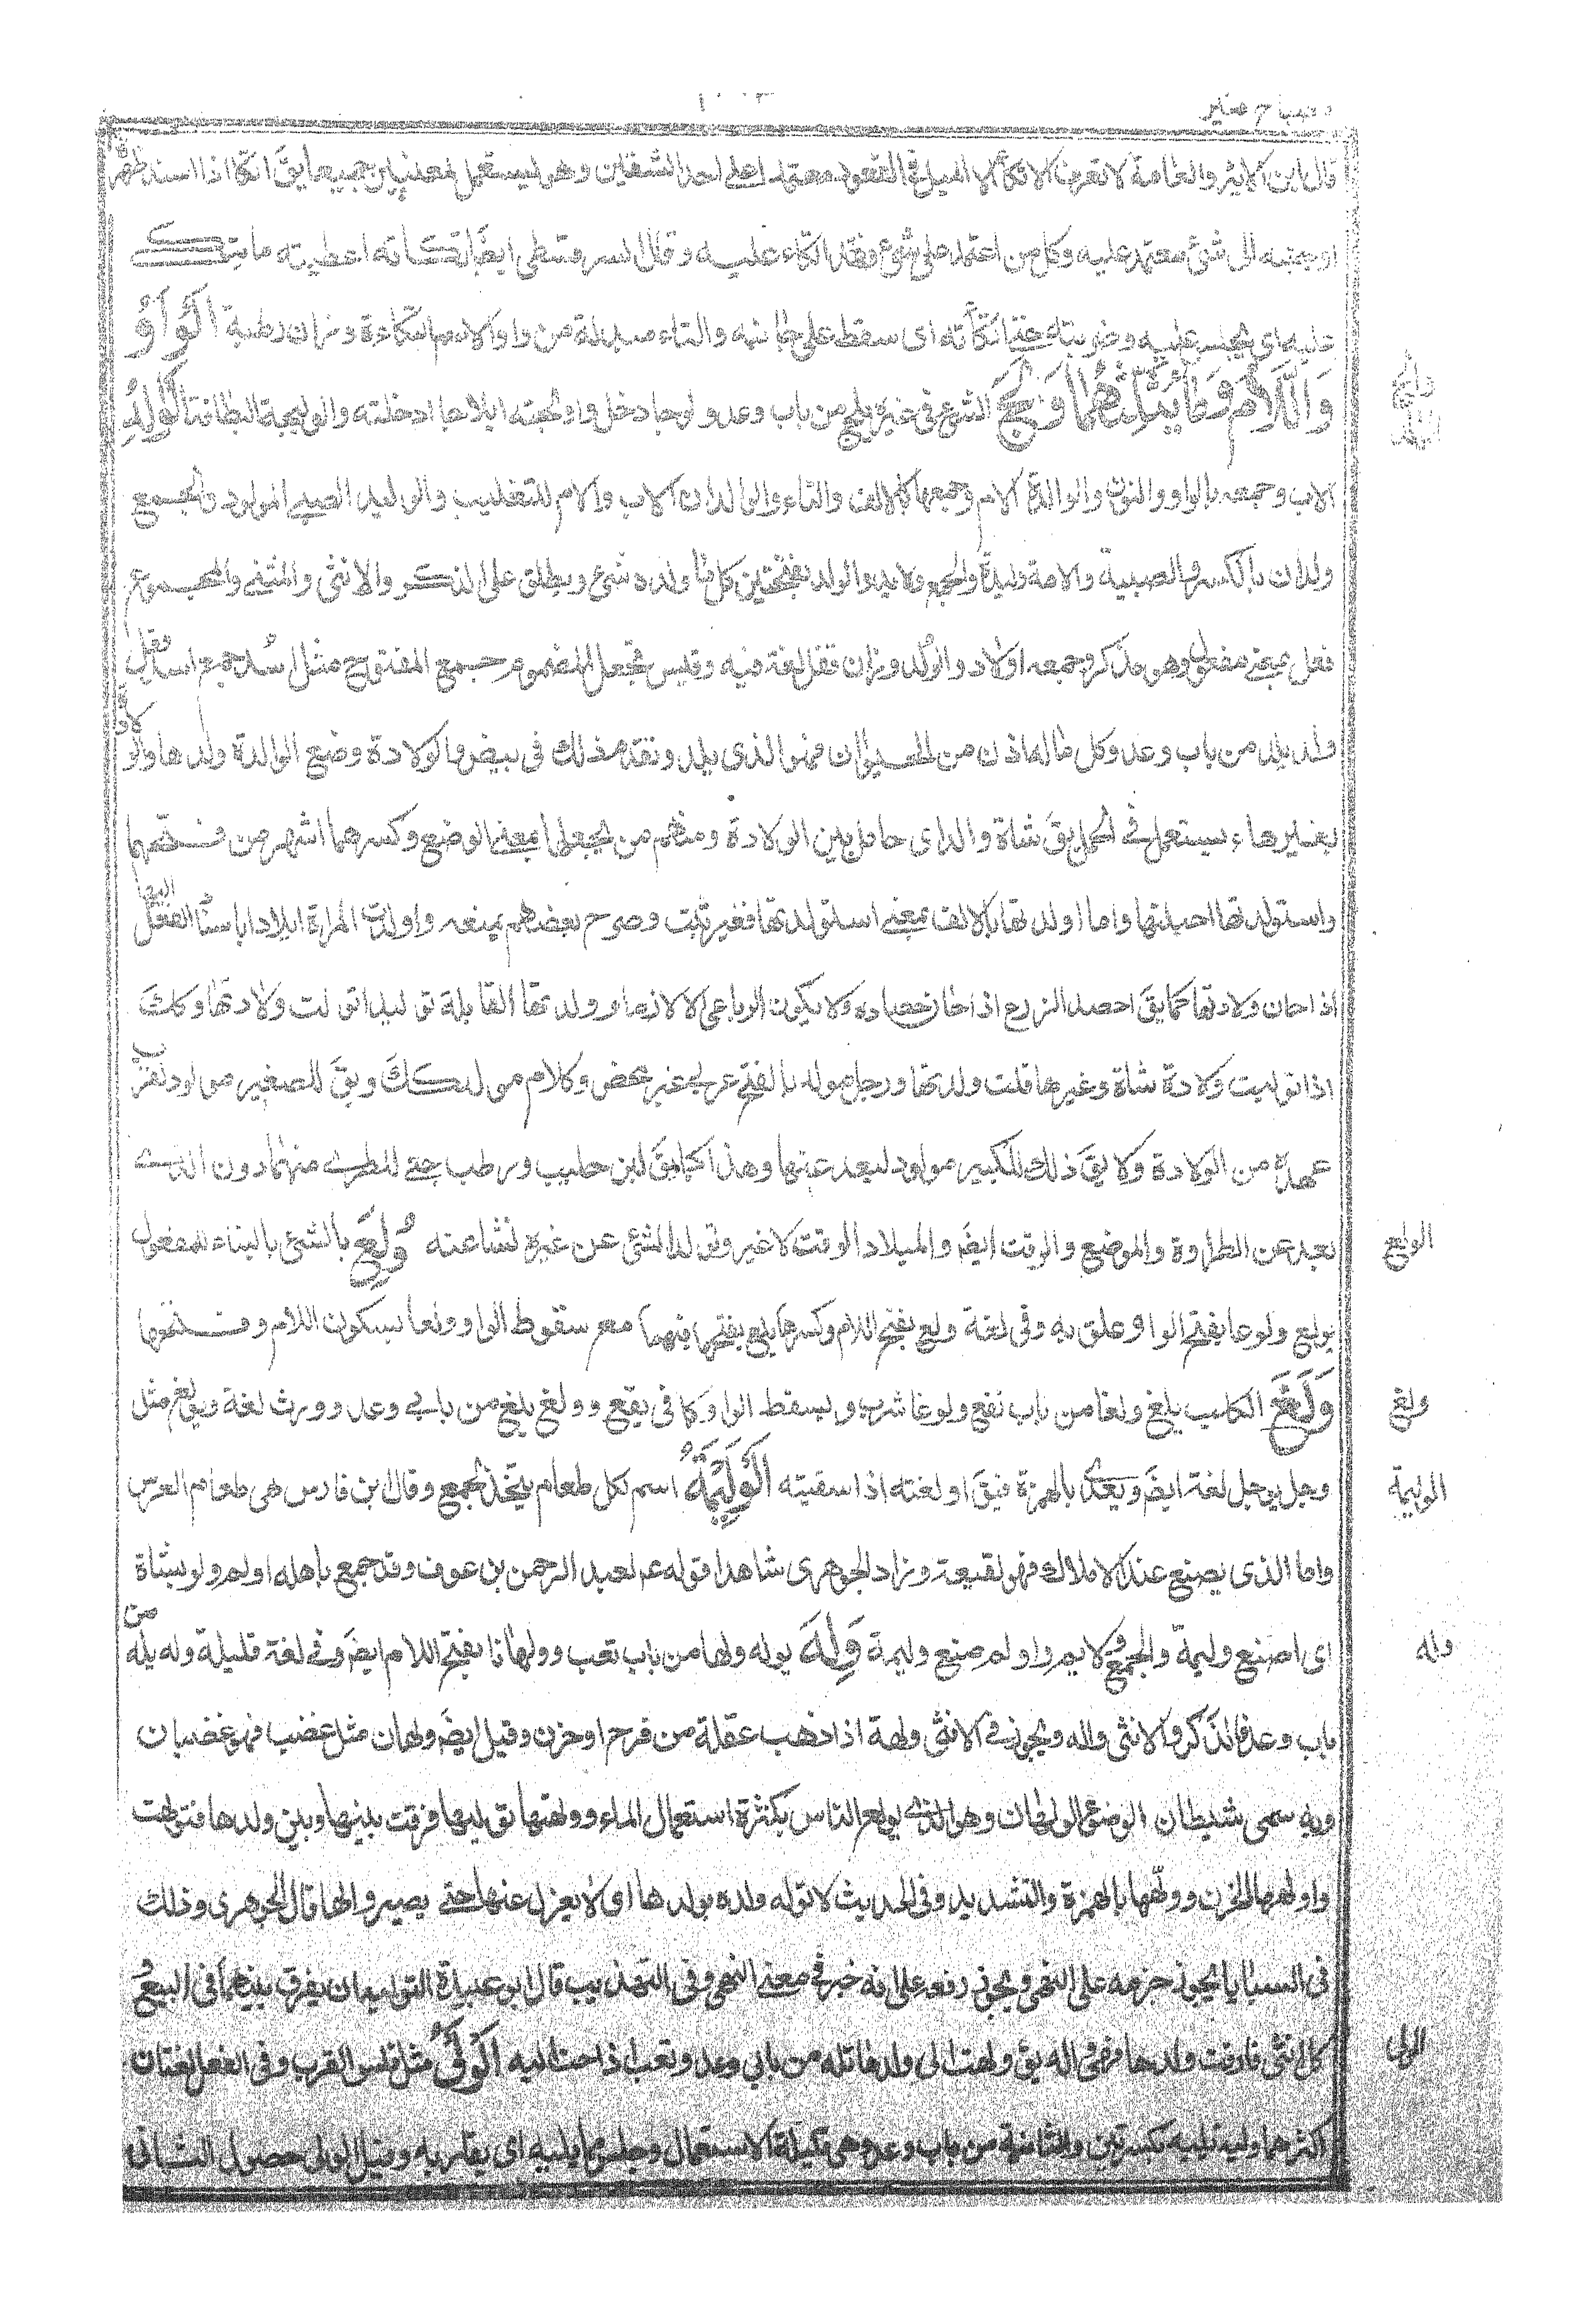 مصباح منير
قال ابن الاثير والعامة لا تعرف الاتكاء الا الميل في القعود معتمدا على احد الشقين وهو يستعمل لمعنيين جميعا يقَ اتكا اذا اسند ظهره
او جنبه الى شئ معتمد عليه وكل من اعتمد على شئ فقد اتكاء عليه وقال السرقسطى ايضا اتكاته اعطيته ما يتكئ
عليه اى يجلس عليه وضربته حتى اتكأته اى سقط على جانبه والتاء مبدلة من واو والاسم التكاءة وزان رطبة الْوَاوُ
وَاللَّامُ وَمَا يَثْلُثُهُمَا وَلَجَ الشئ فى غيره يلج من باب وعد ولوجا دخل واولجته ايلاجا ادخلته والوليجة البطانة الْوَالِدُ
الاب وجمعه بالواو والنون والوالدة الام وجمعها بالالف والتاء والوالدان الاب والام للتغليب والوليد الصبى المولود والجمع
ولدان بالكسر والصبية والامة وليدة والجمع ولايد والولد بفتحتين كل ما ولده شئ ويطلق على الذكر والانثى والمثنى والمجموع
فعل بمعنى مفعول وهو مذكر وجمعه اولاد والوُلد وزان قفل لغة فيه وقيس تجعل المضموم جمع المفتوح مثل اُسُد جمع اسد وقد
ولد يلد من باب وعد وكل ما له اذن من الحيوان فهو الذى يلد وتقدم ذلك فى بيض والولادة وضع الوالدة ولدها والولاد
بغير هاء يستعمل فى الحمل يقَ شاة والد اى حامل بين الولادة ومنهم من يجعلها بمعنى الوضع وكسرهما اشهر من فتحهما
واستولدتها احبلتها واما اولدتها بالالف بمعنى استولدتها فغير ثبت وصرح بعضهم بمنعه واولدت المراة ايلادا باسناد الفعل اليها
اذا حان ولادتها كما يقَ احصد الزرع اذا حان حصاده ولا يكون الرباعى الا لازما وولدتها القابلة توليدا تولت ولادتها وكك
اذا توليت ولادة شاة وغيرها قلت ولدتها ورجل مولد بالفتح عربى غير محض وكلام مولد كك ويقَ للصغير مولود لقرب
عهده من الولادة ولا يقَ ذلك للكبير مولود لبعد عهده عنها وهذا كما يقَ لبن حليب ورطب جنى للطرى منهما دون الذى
بعد عن الطراوة والموضع والوقت ايضَ والميلاد الوقت لا غير وتولد الشئ عن غيره نشا عنه وُلِعَ بالشئ بالبناء للمفعول
يولع ولوعا بفتح الواو علق به وفى لغة ولع بفتح اللام وكسرها يلع بفتحها فيهما مع سقوط الواو ولعا بسكون اللام وفتحها
وَلَغَ الكلب يلغ ولغا من باب نفع ولوغا شرب وبسقط الواو كما فى يقع وولغ يلغ من بابى وعد وورث لغة ويولغ مثل
وجل يوجل لغة ايضَ ويعدى بالهمزة فيقَ اولغته اذا سقيته الْوَلِيْمَةُ اسم لكل طعام يتخذ لجمع وقال ابن فارس هى طعام العرس
واما الذى يصنع عند الاملاك فهو نقيعة وزاد الجوهرى شاهدا قوله عم لعبد الرحمن بن عوف وقد جمع باهله اولم ولو بشاة
اى اصنع وليمة والجمع ولايم واولم صنع وليمة وَلِهَ يوله ولها من باب تعب وولهانا بفتح اللام ايضَ وفى لغة قليلة وله يله من
باب وعد فالذكر والانثى واله ويجوز فى الانثى والهة اذا ذهب عقله من فرح او حزن وقيل ايضَ ولهان مثل غضب فهو غضبان
وبه سمى شيطان الوضوء الولهان وهو الذى يولع الناس بكثرة استعمال الماء وولهتها توليها فرقت بينها وبين ولدها فتولهت
واولهها الحزن وولّهها بالهمزة والتشديد وفى الحديث لا توله والدة بولدها اى لا يعزل عنها حتى يصير والها قال الجوهرى وذلك
فى السبايا يجوز جزمه على النهى ويجوز رفعه على انه خبر فى معنى النهى وفى التهذيب قال ابو عبيدة التوليه ان يفرق بينهما فى البيع و
كل انثى فارقت ولدها فهى واله يقَ ولهت الى ولدها تله من بابى وعد وتعب اذا حنت اليه الْوَلْىُ مثل فلس القرب وفى الفعل لغتان
اكثرهما وليه يليه بكسرتين والثانية من باب وعد وهى قليلة الاستعمال وجلس مما يليه اى يقاربه وقيل الولى حصول الثانى
الولع
ولغ
الوليمة
وله
الولى